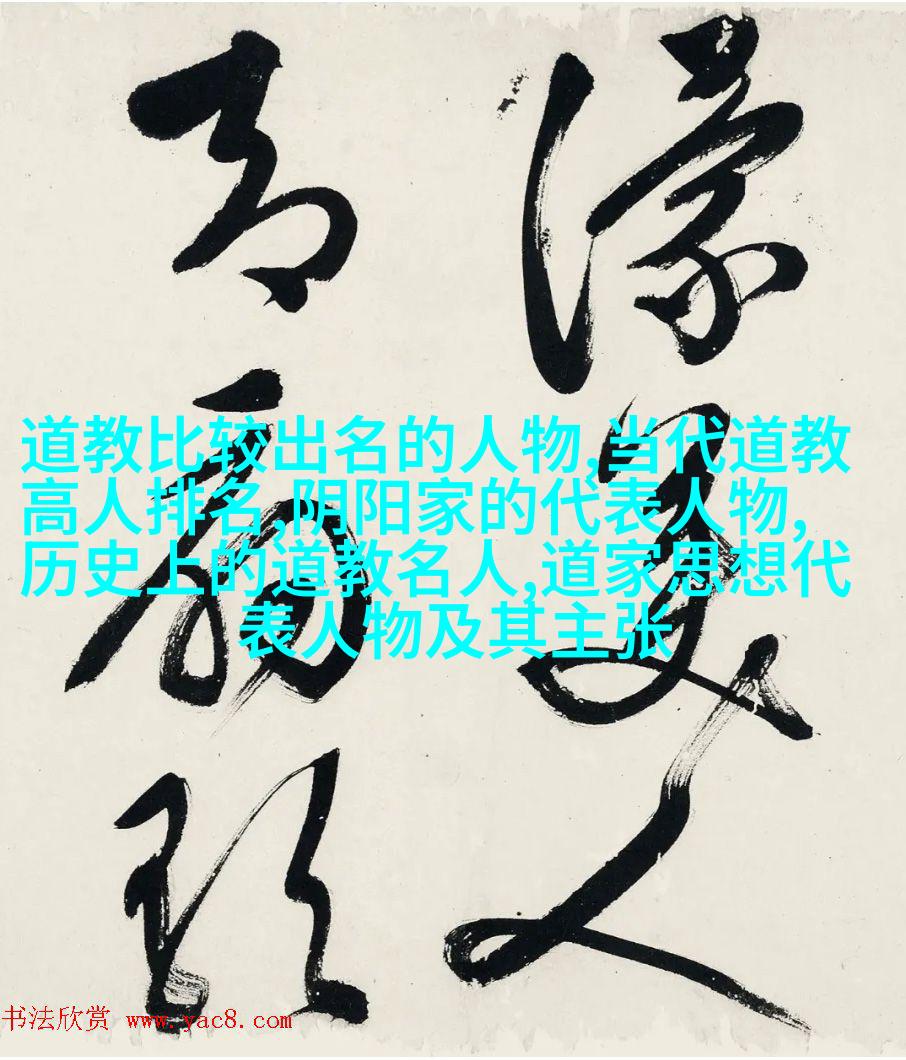 濛美人
道教比较出名的人物,当代道教
高人排名,阴阳家的代表人物,
历史上的道教名人,道家思想代
表人物及其主张
书法欣赏 www.yac8.com